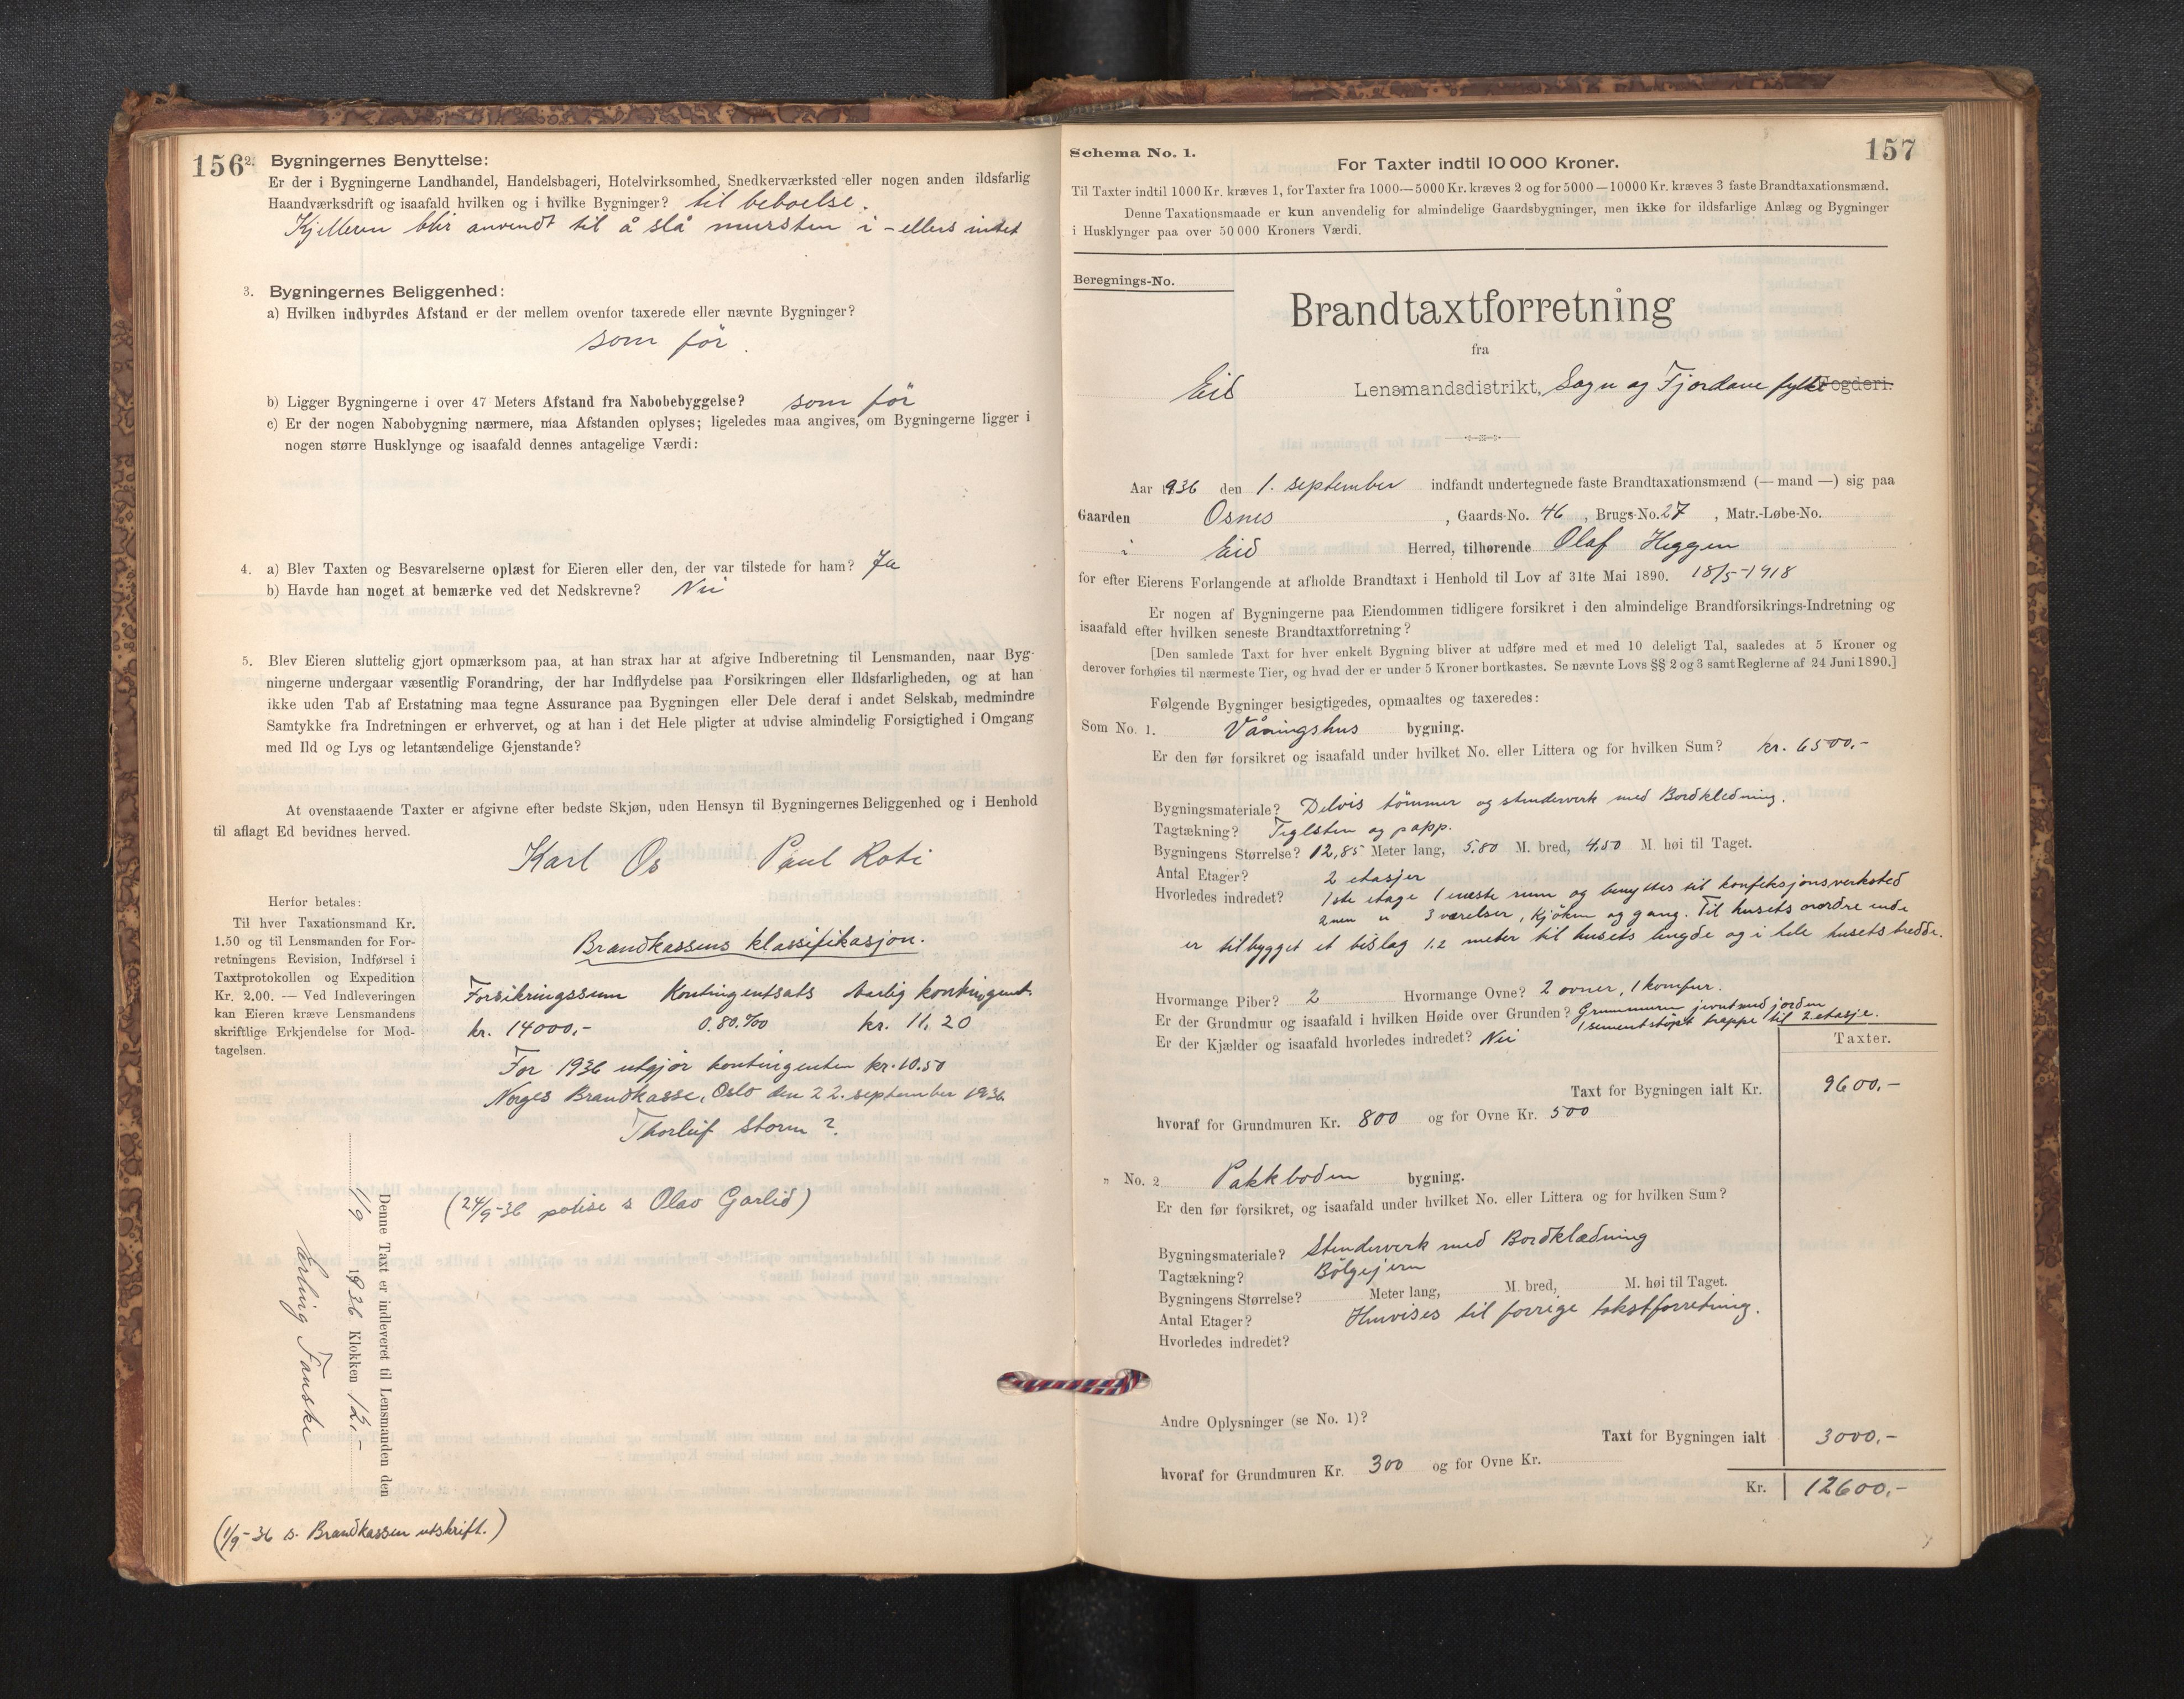 156
2. Bygningernes Benyttelse:
Er der i Bygningerne Landhandel, Handelsbageri, Hotelvirksomhed, Snedkerværksted eller nogen anden ildsfarlig
Haandværksdrift og isaafald hvilken og i hvilke Bygninger? til beboelse.
Kjelleren blir anvendt til å slå mursten i - ellers intet
3. Bygningernes Beliggenhed:
a) Hvilken indbyrdes Afstand er der mellem ovenfor taxerede eller nævnte Bygninger?
som før.
b) Ligger Bygningerne i over 47 Meters Afstand fra Nabobebyggelse? som før
c) Er der nogen Nabobygning nærmere, maa Afstanden oplyses; ligeledes maa angives, om Bygningerne ligger i
nogen større Husklynge og isaafald dennes antagelige Værdi:
4. a) Blev Taxten og Besvarelserne oplæst for Eieren eller den, der var tilstede for ham? Ja
b) Havde han noget at bemærke ved det Nedskrevne? Nei
5. Blev Eieren sluttelig gjort opmærksom paa, at han strax har at afgive Indberetning til Lensmanden, naar Byg-
ningerne undergaar væsentlig Forandring, der har Indflydelse paa Forsikringen eller Ildsfarligheden, og at han
ikke uden Tab af Erstatning maa tegne Assurance paa Bygningen eller Dele deraf i andet Selskab, medmindre
Samtykke fra Indretningen er erhvervet, og at han i det Hele pligter at udvise almindelig Forsigtighed i Omgang
med Ild og Lys og letantændelige Gjenstande?
At ovenstaaende Taxter er afgivne efter bedste Skjøn, uden Hensyn til Bygningernes Beliggenhed og i Henhold
til aflagt Ed bevidnes herved.
Karl Os Paul Roti
Herfor betales:
Til hver Taxationsmand Kr.
1.50 og til Lensmanden for For-
retningens Revision, Indførsel i
Taxtprotokollen og Expedition
Kr. 2.00. — Ved Indleveringen
kan Eieren kræve Lensmandens
skriftlige Erkjendelse for Mod-
tagelsen.
Brandkassens klassifikasjon.
Forsikringssum Kontingentsats Aarlig kontingent
kr. 14000,- 0.80.‰ kr. 11.20
For 1936 utgjør kontingenten kr. 10.50
Norges Brandkasse, Oslo den 22. september 1936
Thorleif Storm ?.
(24/9-36 polise s Olav Garlid)
Denne Taxt er indleveret til Lensmanden den
1/9 1936 Klokken 12,-
Erling Fauske
(1/9-36 s. Brandkassen utskrift.)
157
Schema No. 1.
For Taxter indtil 10 000 Kroner.
Til Taxter indtil 1000 Kr. kræves 1, for Taxter fra 1000—5000 Kr. kræves 2 og for 5000—10000 Kr. kræves 3 faste Brandtaxationsmænd.
Denne Taxationsmaade er kun anvendelig for almindelige Gaardsbygninger, men ikke for ildsfarlige Anlæg og Bygninger
i Husklynger paa over 50 000 Kroners Værdi.
Beregnings-No.
Brandtaxtforretning
fra
Eid Lensmandsdistrikt, Sogn og Fjordane fylke Fogderi.
Aar 1936 den 1. september indfandt undertegnede faste Brandtaxationsmænd (— mand —) sig paa
Gaarden Osnes, Gaards-No. 46, Brugs-No. 27, Matr.-Løbe-No.
i Eid Herred, tilhørende Olaf Heggen
for efter Eierens Forlangende at afholde Brandtaxt i Henhold til Lov af 31te Mai 1890. 18/5-1918
Er nogen af Bygningerne paa Eiendommen tidligere forsikret i den almindelige Brandforsikrings-Indretning og
isaafald efter hvilken seneste Brandtaxtforretning?
[Den samlede Taxt for hver enkelt Bygning bliver at udføre med et med 10 deleligt Tal, saaledes at 5 Kroner og
derover forhøies til nærmeste Tier, og hvad der er under 5 Kroner bortkastes. Se nævnte Lovs §§ 2 og 3 samt Reglerne af 24 Juni 1890.]
Følgende Bygninger besigtigedes, opmaaltes og taxeredes:
Som No. 1. Våningshus bygning.
Er den før forsikret og isaafald under hvilket No. eller Littera og for hvilken Sum? kr. 6500,-
Bygningsmateriale? Delvis tømmer og stenderverk med Bordkledning.
Tagtækning? Teglsten og papp.
Bygningens Størrelse? 12,85 Meter lang, 5.80 M. bred, 4,50 M. høi til Taget.
Antal Etager? 2 etasjer
Hvorledes indredet? 1ste etage 1 neste rum og benyttes til konfeksjonsverksted
2nen " 3 værelser, kjøken og gang. Til husets nordre ende
er tilbygget et bislag 1.2 meter til husets lengde og i hele husets bredde.
Hvormange Piber? 2 Hvormange Ovne? 2 ovner, 1 komfur.
Er der Grundmur og isaafald i hvilken Høide over Grunden? Grunnmuren jevnt med jorden
1 sementstøpt trappe til 2 etasje.
Er der Kjælder og isaafald hvorledes indredet? Nei
Taxter.
Taxt for Bygningen ialt Kr. 9600,-
hvoraf for Grundmuren Kr. 800 og for Ovne Kr. 500
" No. 2 Pakkboden bygning.
Er den før forsikret, og isaafald under hvilket No. eller Littera og for hvilken Sum?
Bygningsmateriale? Stenderverk med Bordklædning
Tagtækning? Bølgejern
Bygningens Størrelse? Meter lang, M. bred, M. høi til Taget.
Antal Etager? Henvises til forrige takstforretning.
Hvorledes indredet?
Andre Oplysninger (se No. 1)?
Taxt for Bygningen ialt 3000,-
hvoraf for Grundmuren Kr. 300 og for Ovne Kr.
Kr. 12600,-